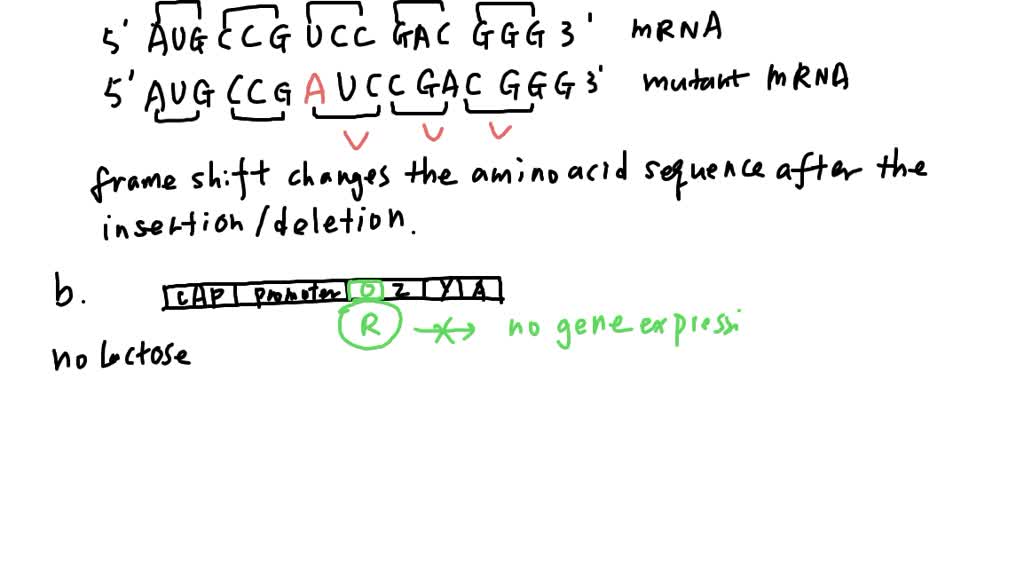 5' AUG CCG UCC GAC GGG 3' mRNA
5' AUG CCG A UC CGAC GGG 3' mutant mRNA
frame shift changes the amino acid sequence after the
insertion/deletion.
b. CAP promoter O Z Y A
R no gene expressi
no lactose